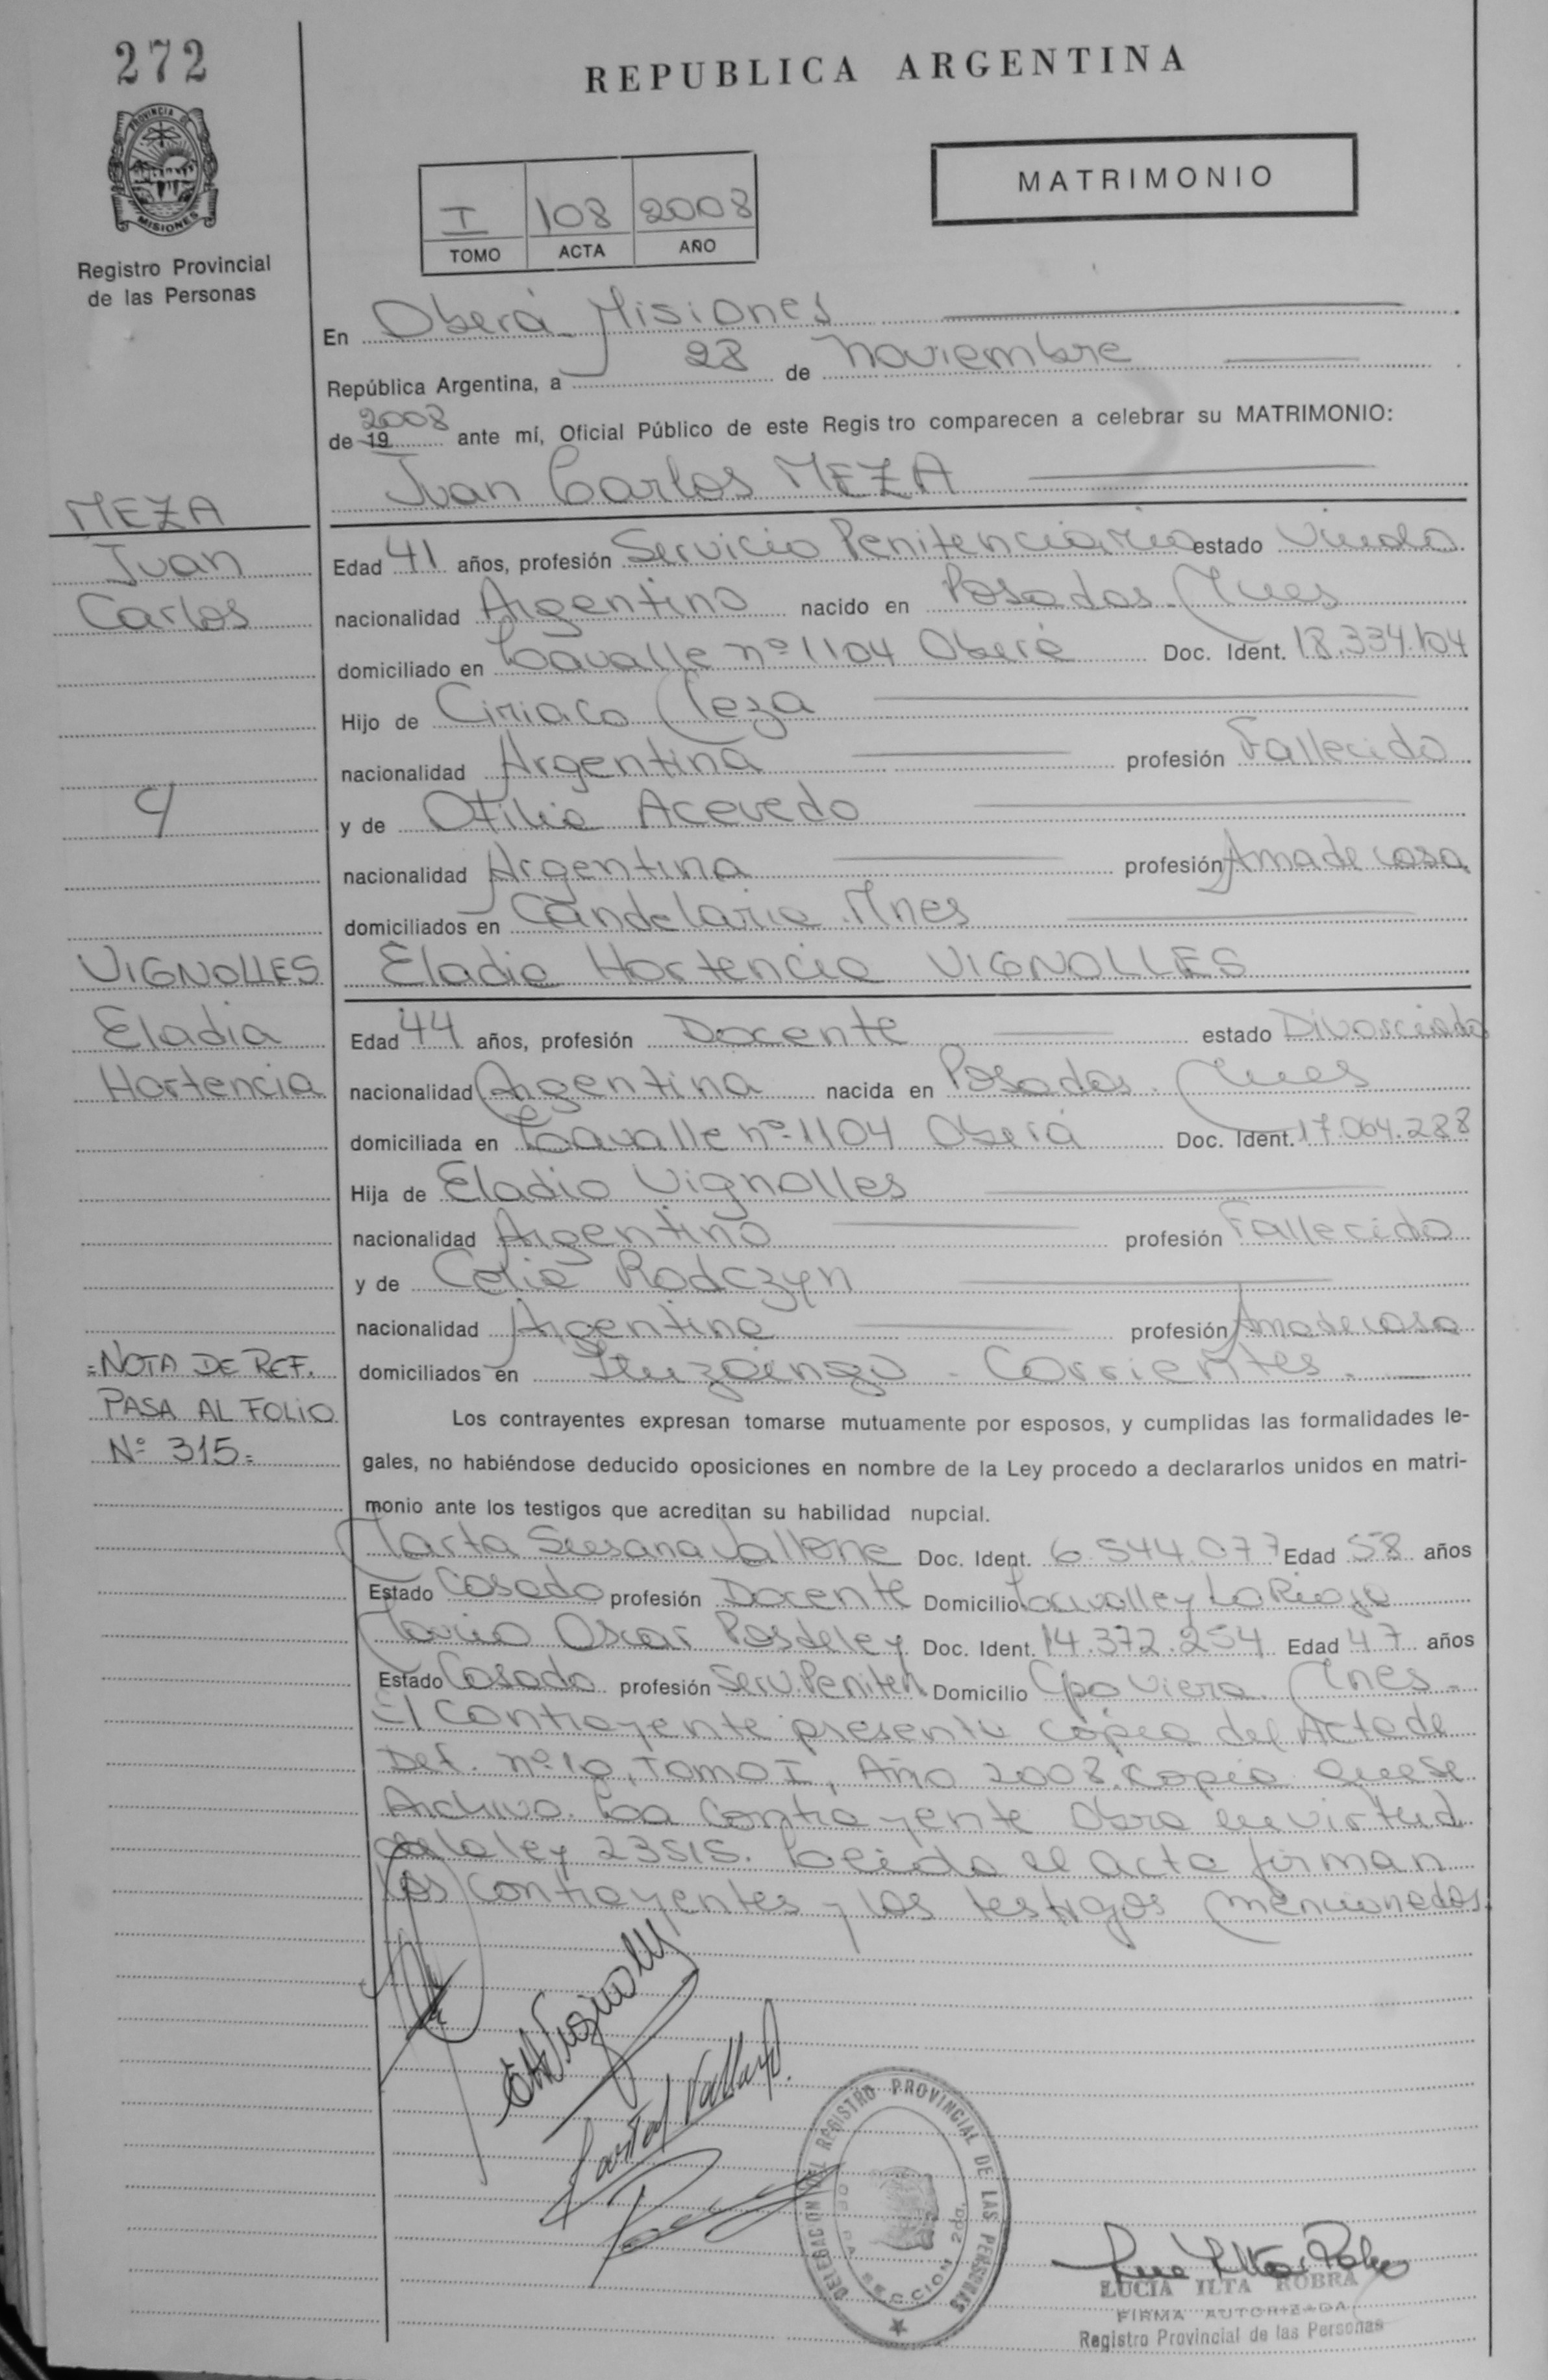 272
REPUBLICA ARGENTINA
PROVINCIA DE
MISIONES
Registro Provincial
de las Personas
MATRIMONIO
I 108 2008
TOMO ACTA AÑO
En Oberá Misiones
República Argentina, a 28 de noviembre
de 19 2008 ante mí, Oficial Público de este Regis tro comparecen a celebrar su MATRIMONIO:
Juan Carlos MEZA
MEZA
Juan
Carlos
Edad 41 años, profesión Servicio Penitenciario estado Viudo
nacionalidad Argentino nacido en Posadas. Mnes
domiciliado en Lavalle nº 1104 Oberá Doc. Ident. 18.334.104
Hijo de Ciriaco Meza
nacionalidad Argentina profesión Fallecido
y
y de Otilia Acevedo
nacionalidad Argentina profesión Ama de casa
domiciliados en Candelaria. Mnes
VIGNOLLES
Eladia
Hortencia
Eladia Hortencia VIGNOLLES
Edad 44 años, profesión Docente estado Divorciada
nacionalidad Argentina nacida en Posadas. Mnes
domiciliada en Lavalle nº 1104 Oberá Doc. Ident. 17.064.288
Hija de Eladio Vignolles
nacionalidad Argentino profesión Fallecido
y de Celia Rodczyn
nacionalidad Argentina profesión Ama de casa
domiciliados en Ituzaingo - Corrientes.
=NOTA DE REF.
PASA AL FOLIO
Nº 315=
Los contrayentes expresan tomarse mutuamente por esposos, y cumplidas las formalidades le-
gales, no habiéndose deducido oposiciones en nombre de la Ley procedo a declararlos unidos en matri-
monio ante los testigos que acreditan su habilidad nupcial.
Marta Susana Doc. Ident. 6.544.077 Edad 58 años
Estado Casado profesión Docente Domicilio Lavalle y La Rioja
Mario Oscar Doc. Ident. 14.372.254 Edad 47 años
Estado Casado profesión Serv. Peniten Domicilio Cpo Viera. Mnes.
El Contrayente presenta copia del Acta de
Def. nº 10, Tomo I, Año 2008. Copia que se
Archiva. La Contrayente Obra en virtud
de la ley 23515. Leída el acta firman
los Contrayentes y los testigos mencionados.
DELEGACION DEL REGISTRO PROVINCIAL DE LAS PERSONAS
SECCION 2da.
LUCIA ILTA ROBRA
FIRMA AUTORIZADA
Registro Provincial de las Personas